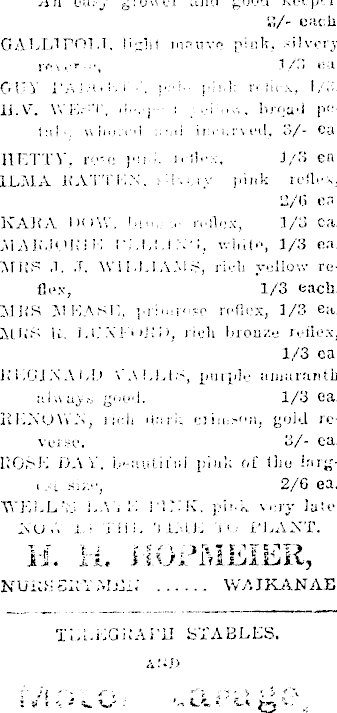 An easy grower and good keeper
3/- each
GALLIPOLI, light mauve pink, silvery
reverse, 1/3 ea
GUY pale pink reflex, 1/3
H.V. WEST, deepest yellow, broad pe-
tals, whorled and incurved, 3/- ea
HETTY, rose pink reflex, 1/3 ea
ILMA RATTEN, silvery pink reflex,
2/6 ea
KARA DOW, bronze reflex, 1/3 ea
MARJORIE PELLING, white, 1/3 ea.
MRS J. J. WILLIAMS, rich yellow re-
flex, 1/3 each.
MRS MEASE, primrose reflex, 1/3 ea
MRS R. LUXFORD, rich bronze reflex,
1/3 ea
REGINALD VALLIS, purple amaranth
always good. 1/3 ea
RENOWN, rich dark crimson, gold re-
verse. 3/- ea.
ROSE DAY, beautiful pink of the larg-
est size, 2/6 ea.
WELL'S LATE PINK, pink very late
NOW IS THE TIME TO PLANT.
H. H. HOPMEIER,
NURSERYMEN ...... WAIKANAE
TELEGRAPH STABLES.
AND
Motor Garage,